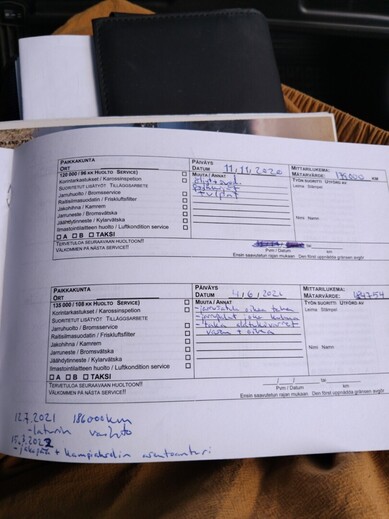 PAIKKAKUNTA
ORT
PÄIVÄYS
DATUM 11.11.2020
MITTARILUKEMA:
MÄTARVÄRDE:
KM
120 000 / 96 KK HUOLTO SERVICE)
MUUTA / ANNAT
TYÖN SUORITTI UTFÖRD AV
Korintarkastukset / Karossinspetion
Leima Stämpel
SUORITETUT LISÄTYÖT TILLÄGGSARBETE
Jarruhuolto / Bromsservice
Raitisilmasuodatin / Friskluftsfilter
Jakohihna / Kamrem
Jarruneste / Bromsvätska
Nimi Namn
Jäähdytinneste / Kylarvätska
Ilmastointilaitteen huolto / Luftkondition service
A B TAKSI
TERVETULOA SEURAAVAAN HUOLTOON!!
VÄLKOMMEN PÅ NÄSTA SERVICE!
Pvm / Datum km
Ensin saavutetun rajan mukaan Den först uppnådda gränsen avgör
PAIKKAKUNTA
ORT
PÄIVÄYS
DATUM 4/6/2021
MITTARILUKEMA:
MÄTARVÄRDE: 184754
135 000 / 108 KK HUOLTO SERVICE)
MUUTA / ANNAT
TYÖN SUORITTI UTFÖRD AV
Korintarkastukset / Karossinspetion
Leima Stämpel
SUORITETUT LISÄTYÖT TILLÄGGSARBETE
Jarruhuolto / Bromsservice
Raitisilmasuodatin / Friskluftsfilter
Jakohihna / Kamrem
Jarruneste / Bromsvätska
Nimi Namn
Jäähdytinneste / Kylarvätska
Ilmastointilaitteen huolto / Luftkondition service
A B TAKSI
TERVETULOA SEURAAVAAN HUOLTOON!!
VÄLKOMMEN PÅ NÄSTA SERVICE!
Pvm / Datum km
Ensin saavutetun rajan mukaan Den först uppnådda gränsen avgör
12.7.2021 186000km
- laturin vaihto
15.3.2022
+ kampiakselin asentoanturi